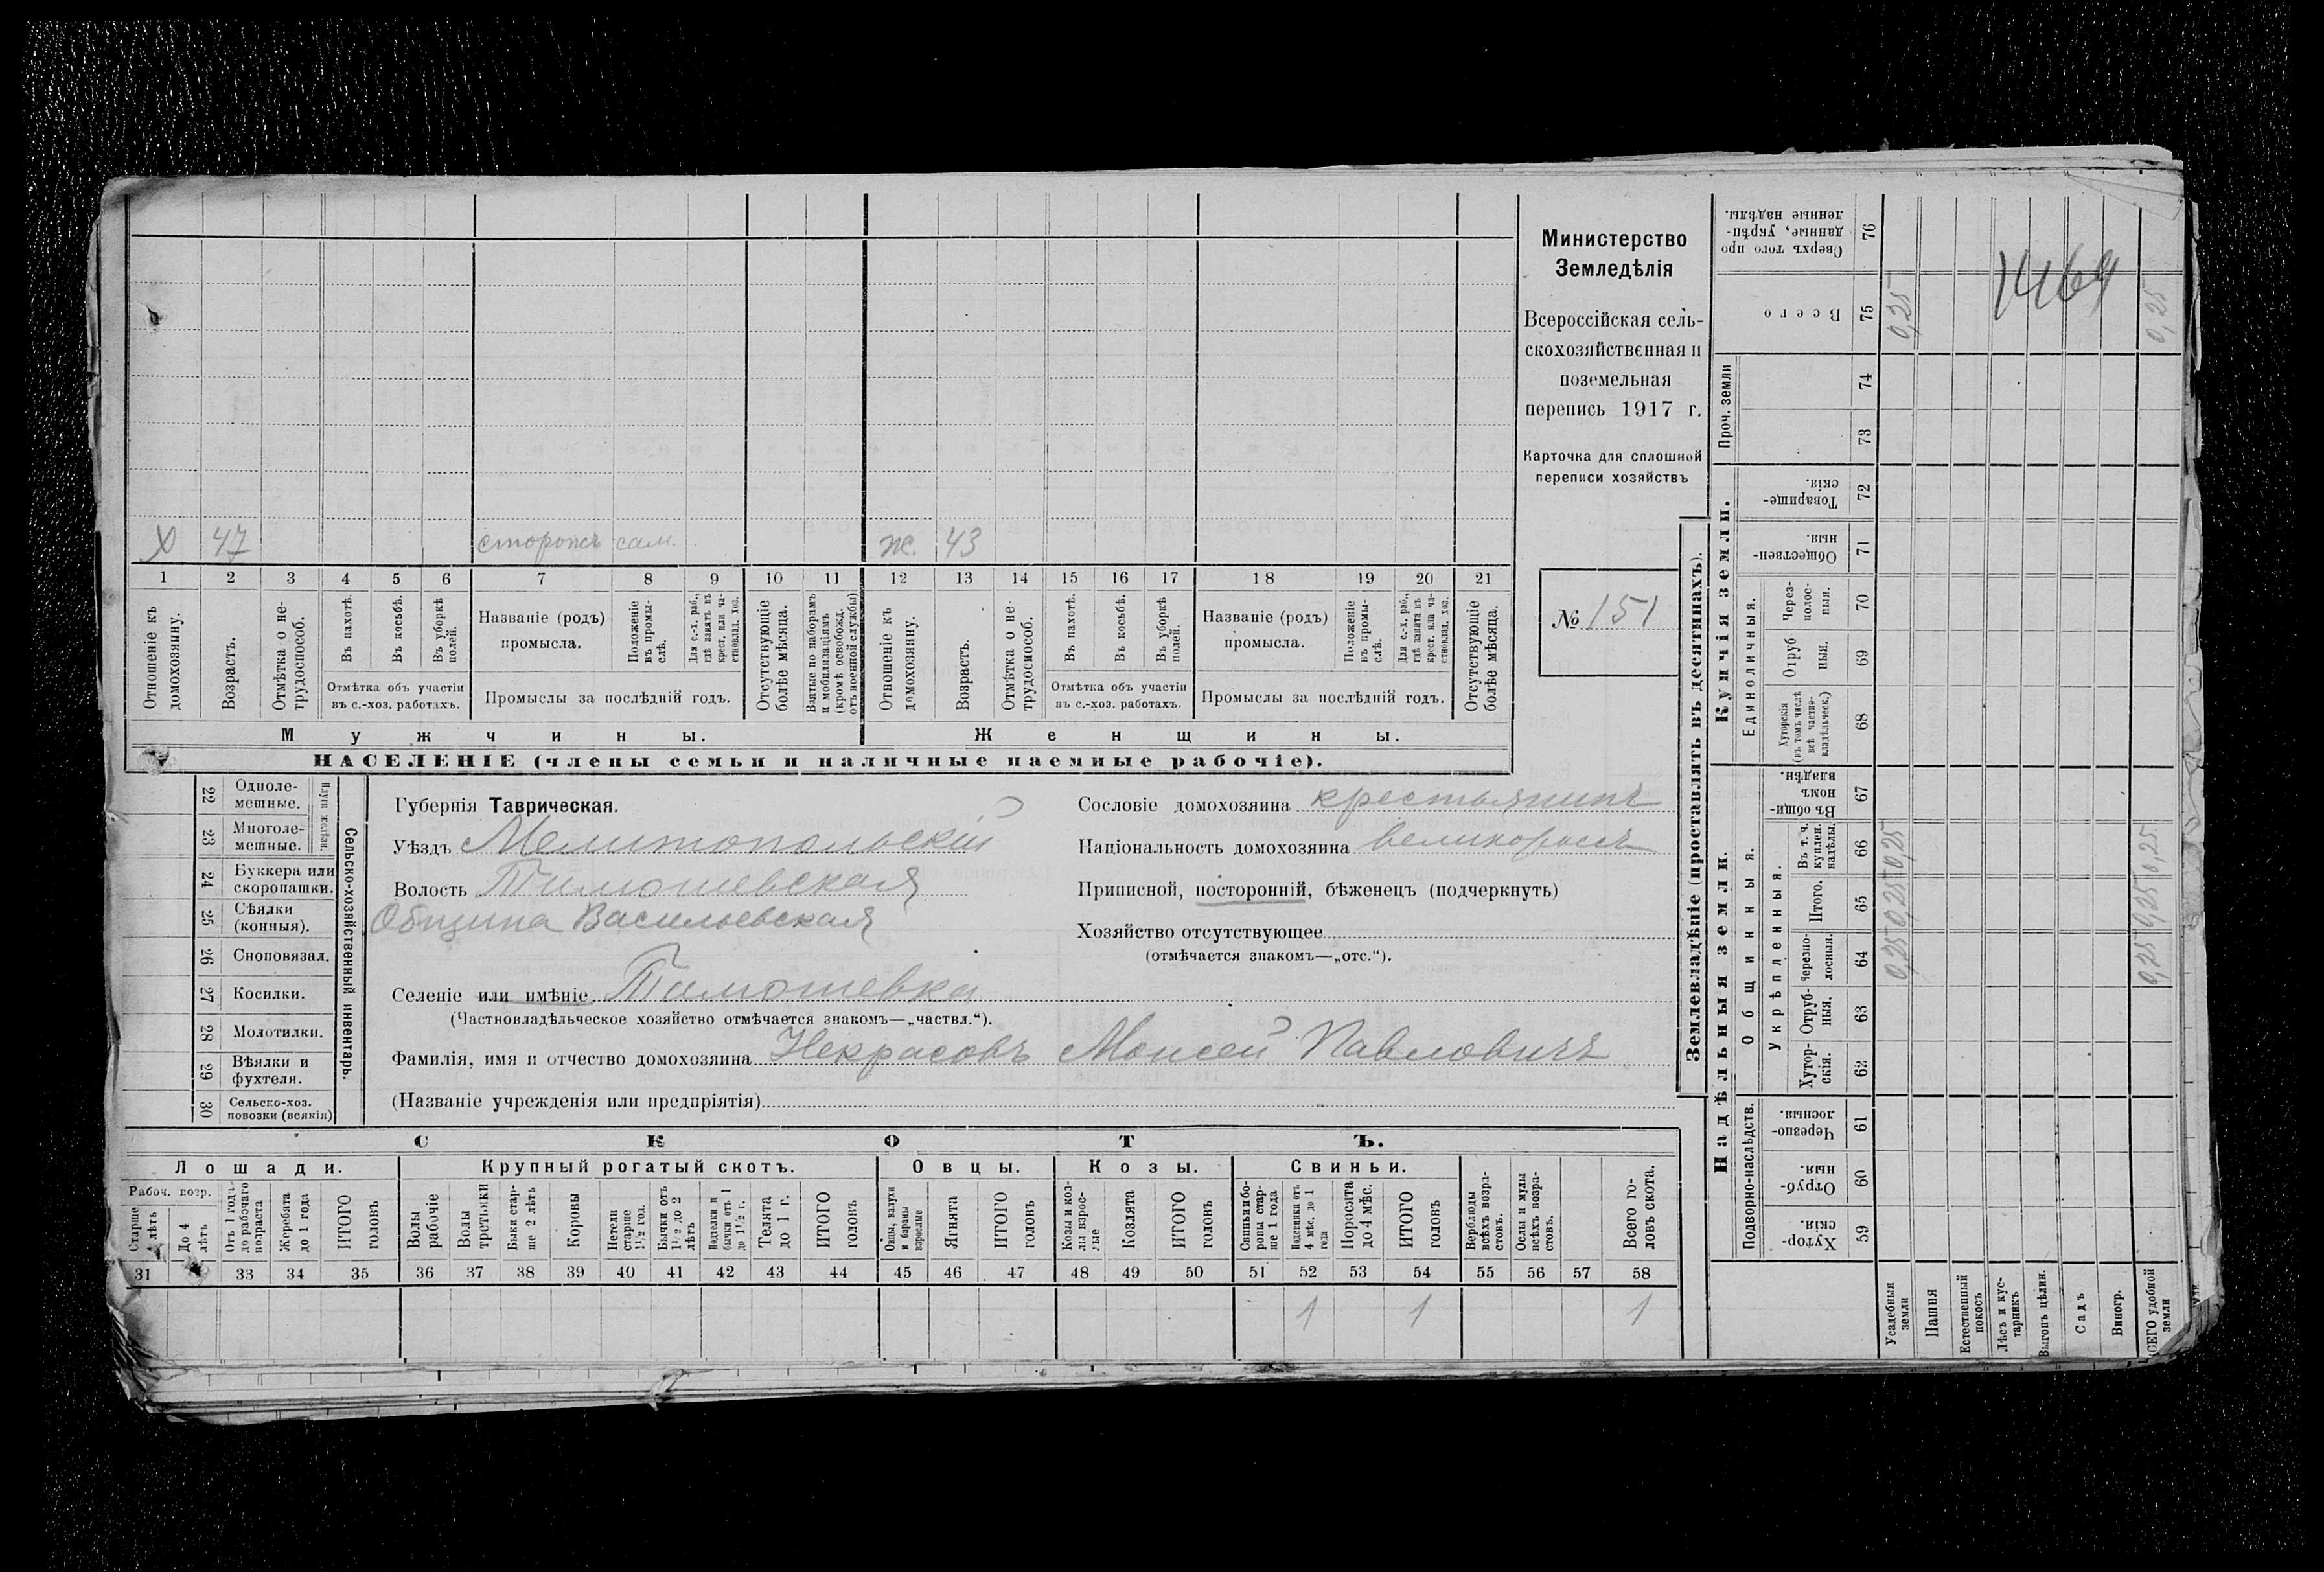 Министерство
Земледѣлія
Всероссійская сель-
скохозяйственная и
поземельная
перепись 1917 г.
Карточка для сплошной
переписи хозяйствъ
№ 151
Х 47 сторожъ сам. ж. 43
1 2 3 4 5 6 7 8 9 10 11 12 13 14 15 16 17 18 19 20 21
Отношеніе къ домохозяину.
Возрастъ.
Отмѣтка о не-трудоспособ.
Въ пахотѣ.
Въ косьбѣ.
Въ уборкѣ полей.
Отмѣтка объ участіи
въ с.-хоз. работахъ.
Названіе (родъ)
промысла.
Положеніе въ промы-слѣ.
Для с.-х. раб., гдѣ занятъ въ крест. или ча-стновлад. хоз.
Промыслы за послѣдній годъ.
Отсутствующіе болѣе мѣсяца.
Взятые по наборамъ и мобилизаціямъ (кромѣ освобожд. отъ военной службы)
Отношеніе къ домохозяину.
Возрастъ.
Отмѣтка о не-трудоспособ.
Въ пахотѣ.
Въ косьбѣ.
Въ уборкѣ полей.
Отмѣтка объ участіи
въ с.-хоз. работахъ.
Названіе (родъ)
промысла.
Положеніе въ промы-слѣ.
Для с.-х. раб., гдѣ занята въ крест. или ча-стновлад. хоз.
Промыслы за послѣдній годъ.
Отсутствующіе болѣе мѣсяца.
Мужчины. Женщины.
НАСЕЛЕНІЕ (члены семьи и наличные наемные рабочіе).
Сельско-хозяйственный инвентарь.
Плуги желѣзн.
22 Одноле-мешные.
23 Многоле-мешные.
24 Буккера или скоропашки.
25 Сѣялки (конныя).
26 Сноповязал.
27 Косилки.
28 Молотилки.
29 Вѣялки и фухтеля.
30 Сельско-хоз. повозки (всякія)
Губернія Таврическая.
Уѣздъ Мелитопольскій
Волость Тимошевская
Община Васильевская
Селеніе или имѣніе Тимошевка
(Частновладѣльческое хозяйство отмѣчается знакомъ—„частвл.“).
Фамилія, имя и отчество домохозяина Некрасовъ Моисей Павловичъ
(Названіе учрежденія или предпріятія)
Сословіе домохозяина крестьянинъ
Національность домохозяина великороссъ
Приписной, посторонній, бѣженецъ (подчеркнуть)
Хозяйство отсутствующее
(отмѣчается знакомъ—„отс.“).
СКОТЪ.
Лошади. Крупный рогатый скотъ. Овцы. Козы. Свиньи.
Рабоч. возр.
Старше 4 лѣтъ
До 4 лѣтъ
Отъ 1 года до рабочаго возраста
Жеребята до 1 года
ИТОГО головъ
Волы рабочіе
Волы третьяки
Быки стар-ше 2 лѣтъ
Коровы
Нетели старше 1½ год.
Бычки отъ 1½ до 2 лѣтъ
Подтелки и бычки отъ 1 до 1½ г.
Телята до 1 г.
ИТОГО головъ
Овцы, валухи и бараны взрослые
Ягнята
ИТОГО головъ
Козы и коз-лы взрос-лые
Козлята
ИТОГО головъ
Свиньи и бо-ровы стар-ше 1 года
Подсвинки отъ 4 мѣс. до 1 года
Поросята до 4 мѣс.
ИТОГО головъ
Верблюды всѣхъ возра-стовъ.
Ослы и мулы всѣхъ возра-стовъ.
Всего го-ловъ скота.
31 33 34 35 36 37 38 39 40 41 42 43 44 45 46 47 48 49 50 51 52 53 54 55 56 57 58
1 1 1
Землевладѣніе (проставлять въ десятинахъ).
Надѣльныя земли. Купчія земли.
Подворно-наслѣдств.
Общинныя.
Укрѣпленныя.
Единоличныя.
Проч. земли
Хутор-скія. 59
Отруб-ныя. 60
Черезпо-лосныя. 61
Хутор-скія. 62
Отруб-ныя. 63
Черезпо-лосныя. 64
Итого. 65
Въ т. ч. куплен. надѣлы. 66
Въ общи-номъ владѣн. 67
Хуторскія (въ томъ числѣ всѣ частно-владѣльческ.) 68
Отруб ныя. 69
Через-полос-ныя. 70
Обществен-ныя. 71
Товарище-скія. 72
73
74
Всего 75
Сверхъ того про данные, укрѣп-ленные надѣлы. 76
Усадебныя земли 0,25 0,25 0,25 0,25
Пашня
Естественный покосъ
Лѣсъ и кус-тарникъ
Выгонъ цѣлин.
Садъ
Виногр.
ВСЕГО удобной земли 0,25 0,25 0,25 0,25
1469